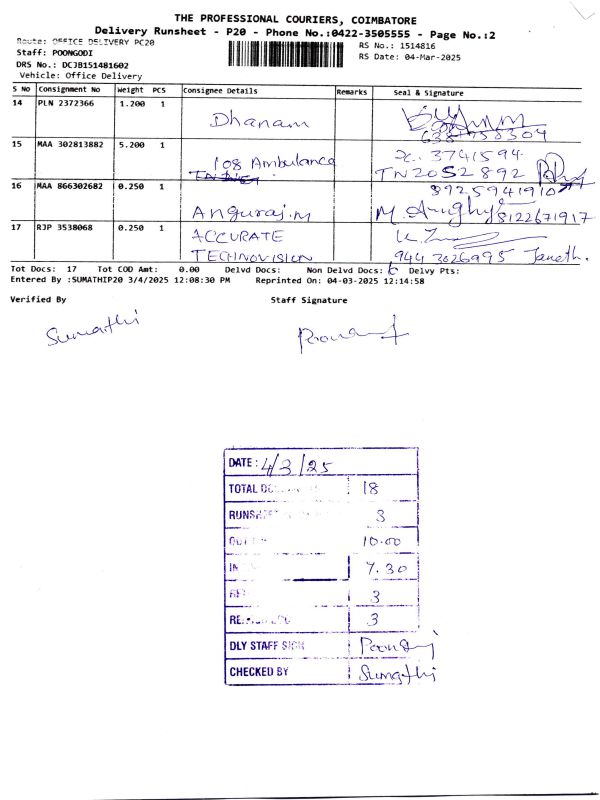 THE PROFESSIONAL COURIERS, COIMBATORE
Delivery Runsheet - P20 - Phone No.:0422-3505555 - Page No.:2
Route: OFFICE DELIVERY PC20
RS No.: 1514816
Staff: POONGODI
RS Date: 04-Mar-2025
DRS No.: DCJB151481602
Vehicle: Office Delivery
S No Consignment No Weight PCS Consignee Details Remarks Seal & Signature
14 PLN 2372366 1.200 1 Dhanam
15 MAA 302813882 5.200 1 108 Ambulance 3741594
TN2052892
8925941910
16 MAA 866302682 0.250 1 Anguraj.M M. 8122671917
17 RJP 3538068 0.250 1 ACCURATE
TECHNOVISION 944 3026995
Tot Docs: 17 Tot COD Amt: 0.00 Delvd Docs: Non Delvd Docs: Delvy Pts:
Entered By :SUMATHIP20 3/4/2025 12:08:30 PM Reprinted On: 04-03-2025 12:14:58
Verified By Staff Signature
Sumathi
DATE: 4/3/25
TOTAL 18
3
10.00
IN 7.30
3
3
DLY STAFF SIGN
CHECKED BY Sumathi